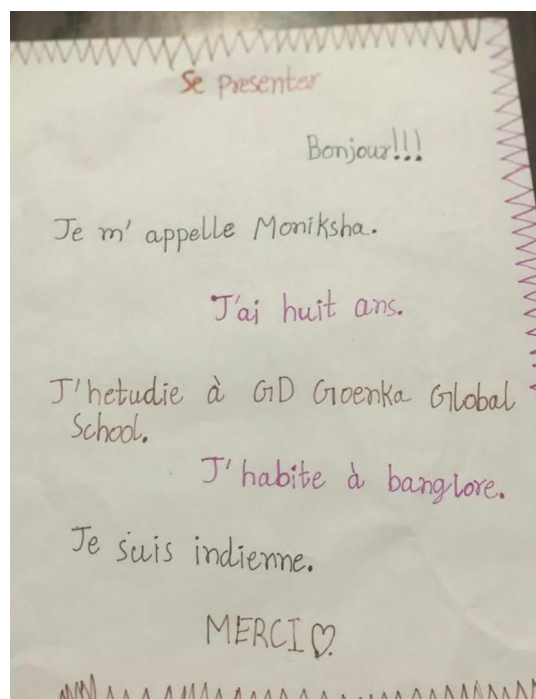 Se presenter
Bonjour!!!
Je m' appelle Moniksha.
J'ai huit ans.
J'hetudie à GD Goenka Global
School.
J'habite à banglore.
Je suis indienne.
MERCI♡